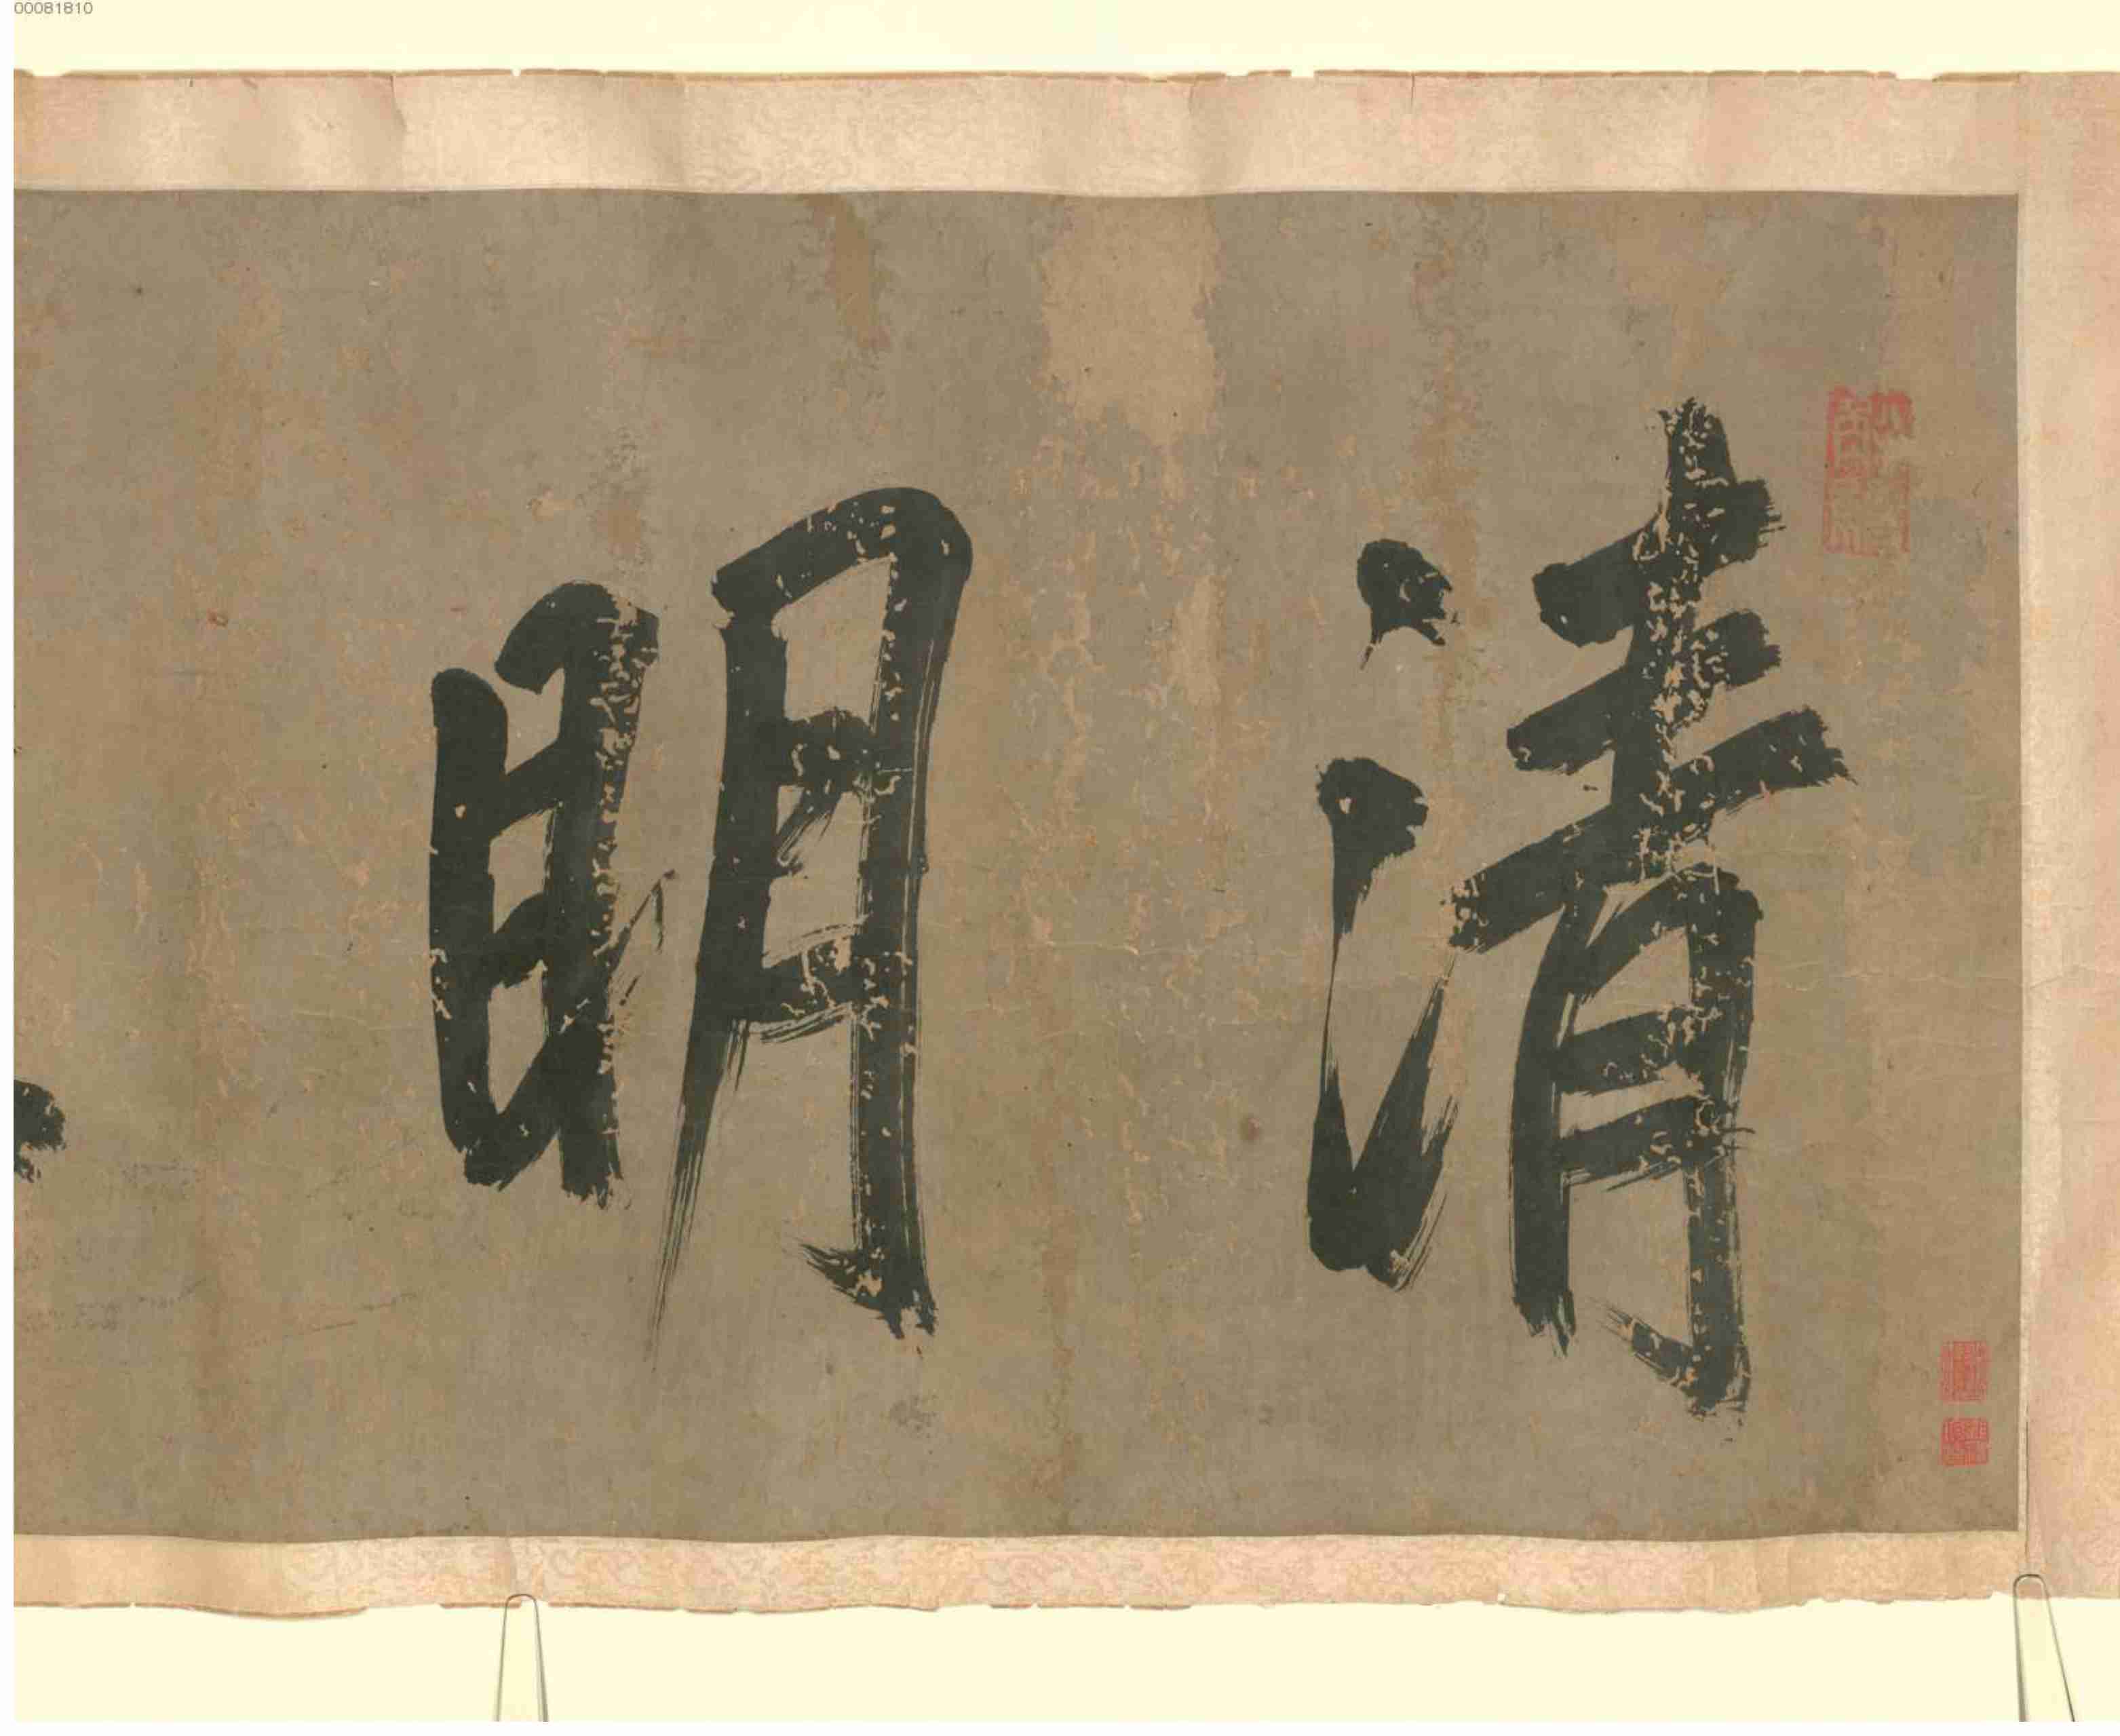 00081810
清明